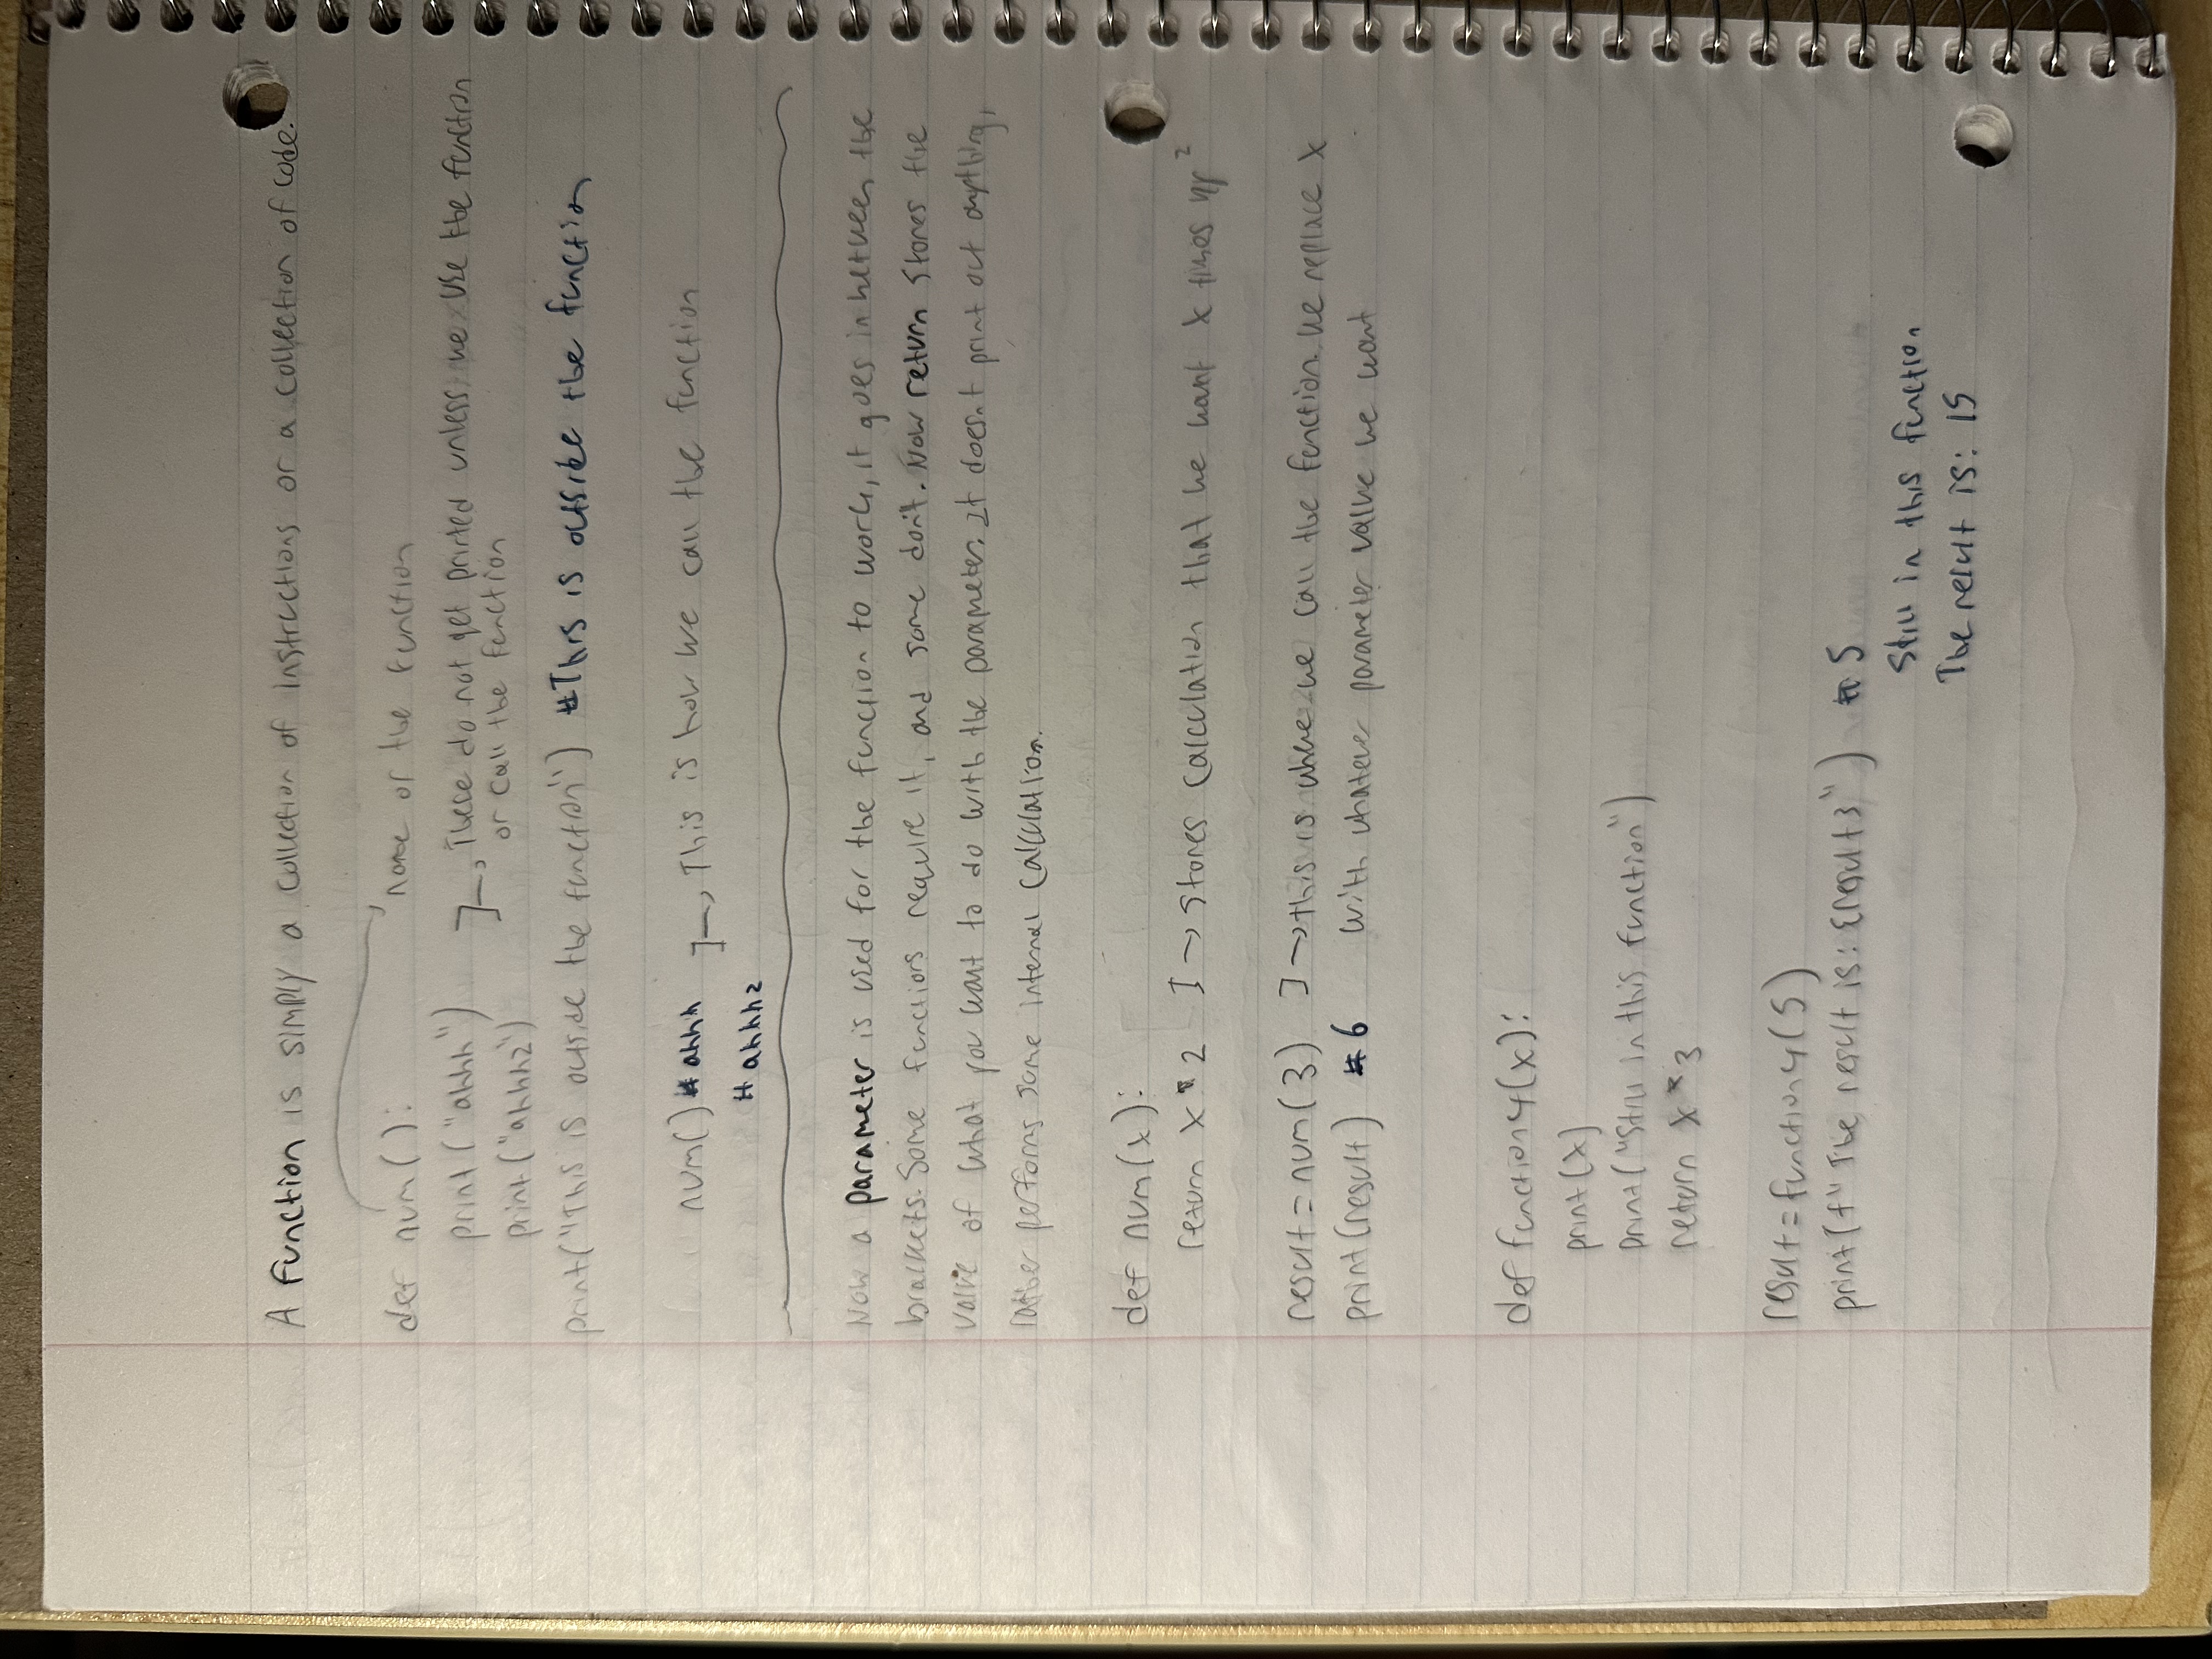 A function is simply a collection of instructions or a collection of code.
def num(): name of the function
print("ahhh") These do not get printed unless we use the function
or call the function
print("ahhh2")
print("This is outside the function") #This is outside the function
num() #ahhh This is how we call the function
#ahhh2
Now a parameter is used for the function to work, it goes in between the
brackets. Some functions require it, and some don't. Now return stores the
value of what you want to do with the parameter. It doesn't print out anything,
rather performs some internal calculation.
def num(x):
return x * 2 Stores calculation that we want x times by 2
result=num(3) this is where we call the function. We replace x
print(result) #6 with whatever parameter value we want
def function4(x):
print(x)
print("Still in this function")
return x * 3
result=function4(5)
print(f"The result is: {result}") #5
Still in this function
The result is: 15